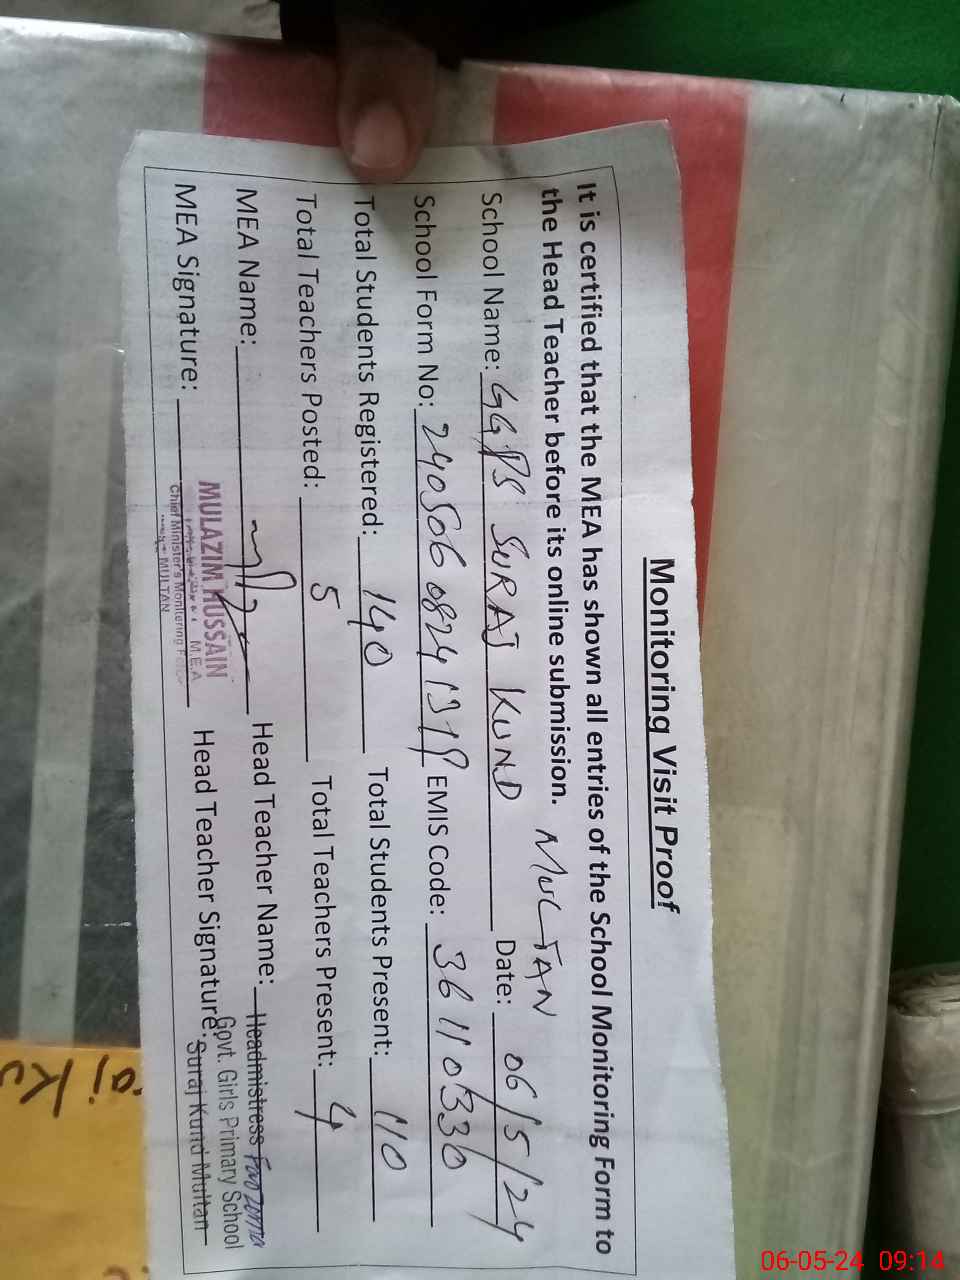 Monitoring Visit Proof
It is certified that the MEA has shown all entries of the School Monitoring Form to
the Head Teacher before its online submission. MULTAN
School Name: GGPS SURAJ KUND Date: 06/5/24
School Form No: EMIS Code: 36110330
Total Students Registered: 140 Total Students Present: 110
Total Teachers Posted: 5 Total Teachers Present: 4
MEA Name: Head Teacher Name: Headmistress
Govt. Girls Primary School
MEA Signature: Head Teacher Signature: Suraj Kund Multan
MULAZIM HUSSAIN
M.E.A
Chief Minister's Monitoring Force
MULTAN
aj Ku
06-05-24 09:14